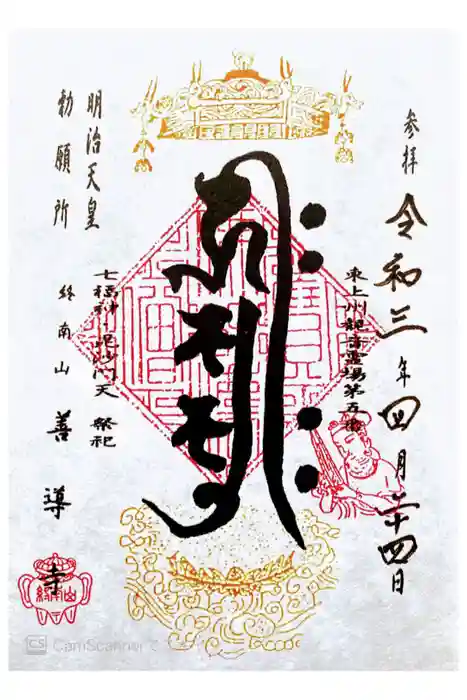 参拝
令和三年四月二十四日
東上州観音霊場第五番
明治天皇
勅願所
七福神 毘沙門天 祭祀
終南山 善導寺
CS CamScanner で